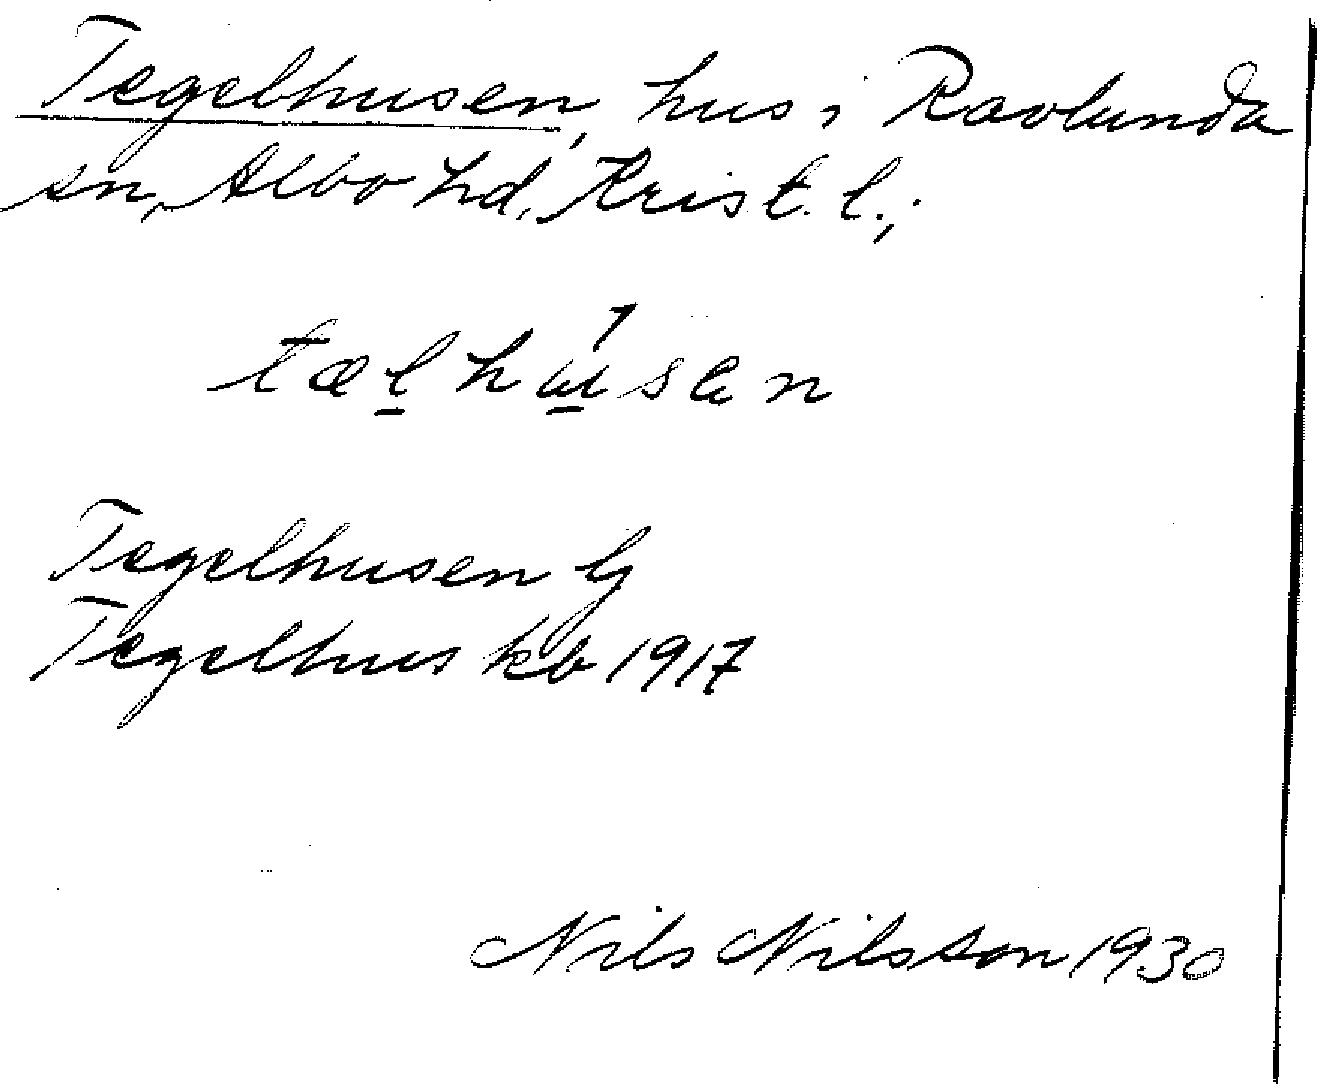 Tegelhusen, hus i Ravlunda
sn, Albo hd, Krist. l.;
tælhusen
Tegelhusen G
Tegelhus kb 1917
Nils Nilsson 1930